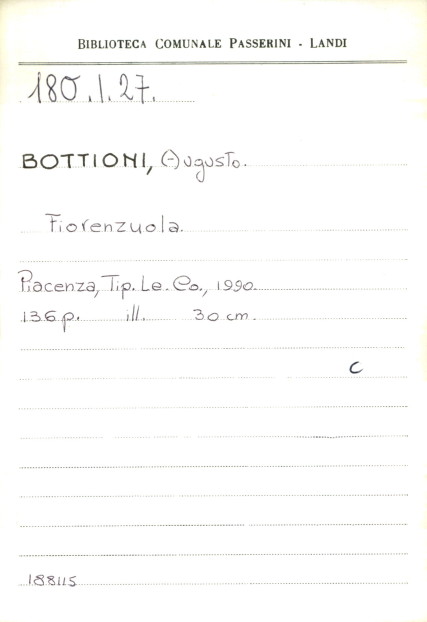 BIBLIOTECA COMUNALE PASSERINI - LANDI
180.I.27.
BOTTIONI, Augusto.
Fiorenzuola.
Piacenza, Tip. Le. Co., 1990.
136 p. ill. 30 cm.
C
188115